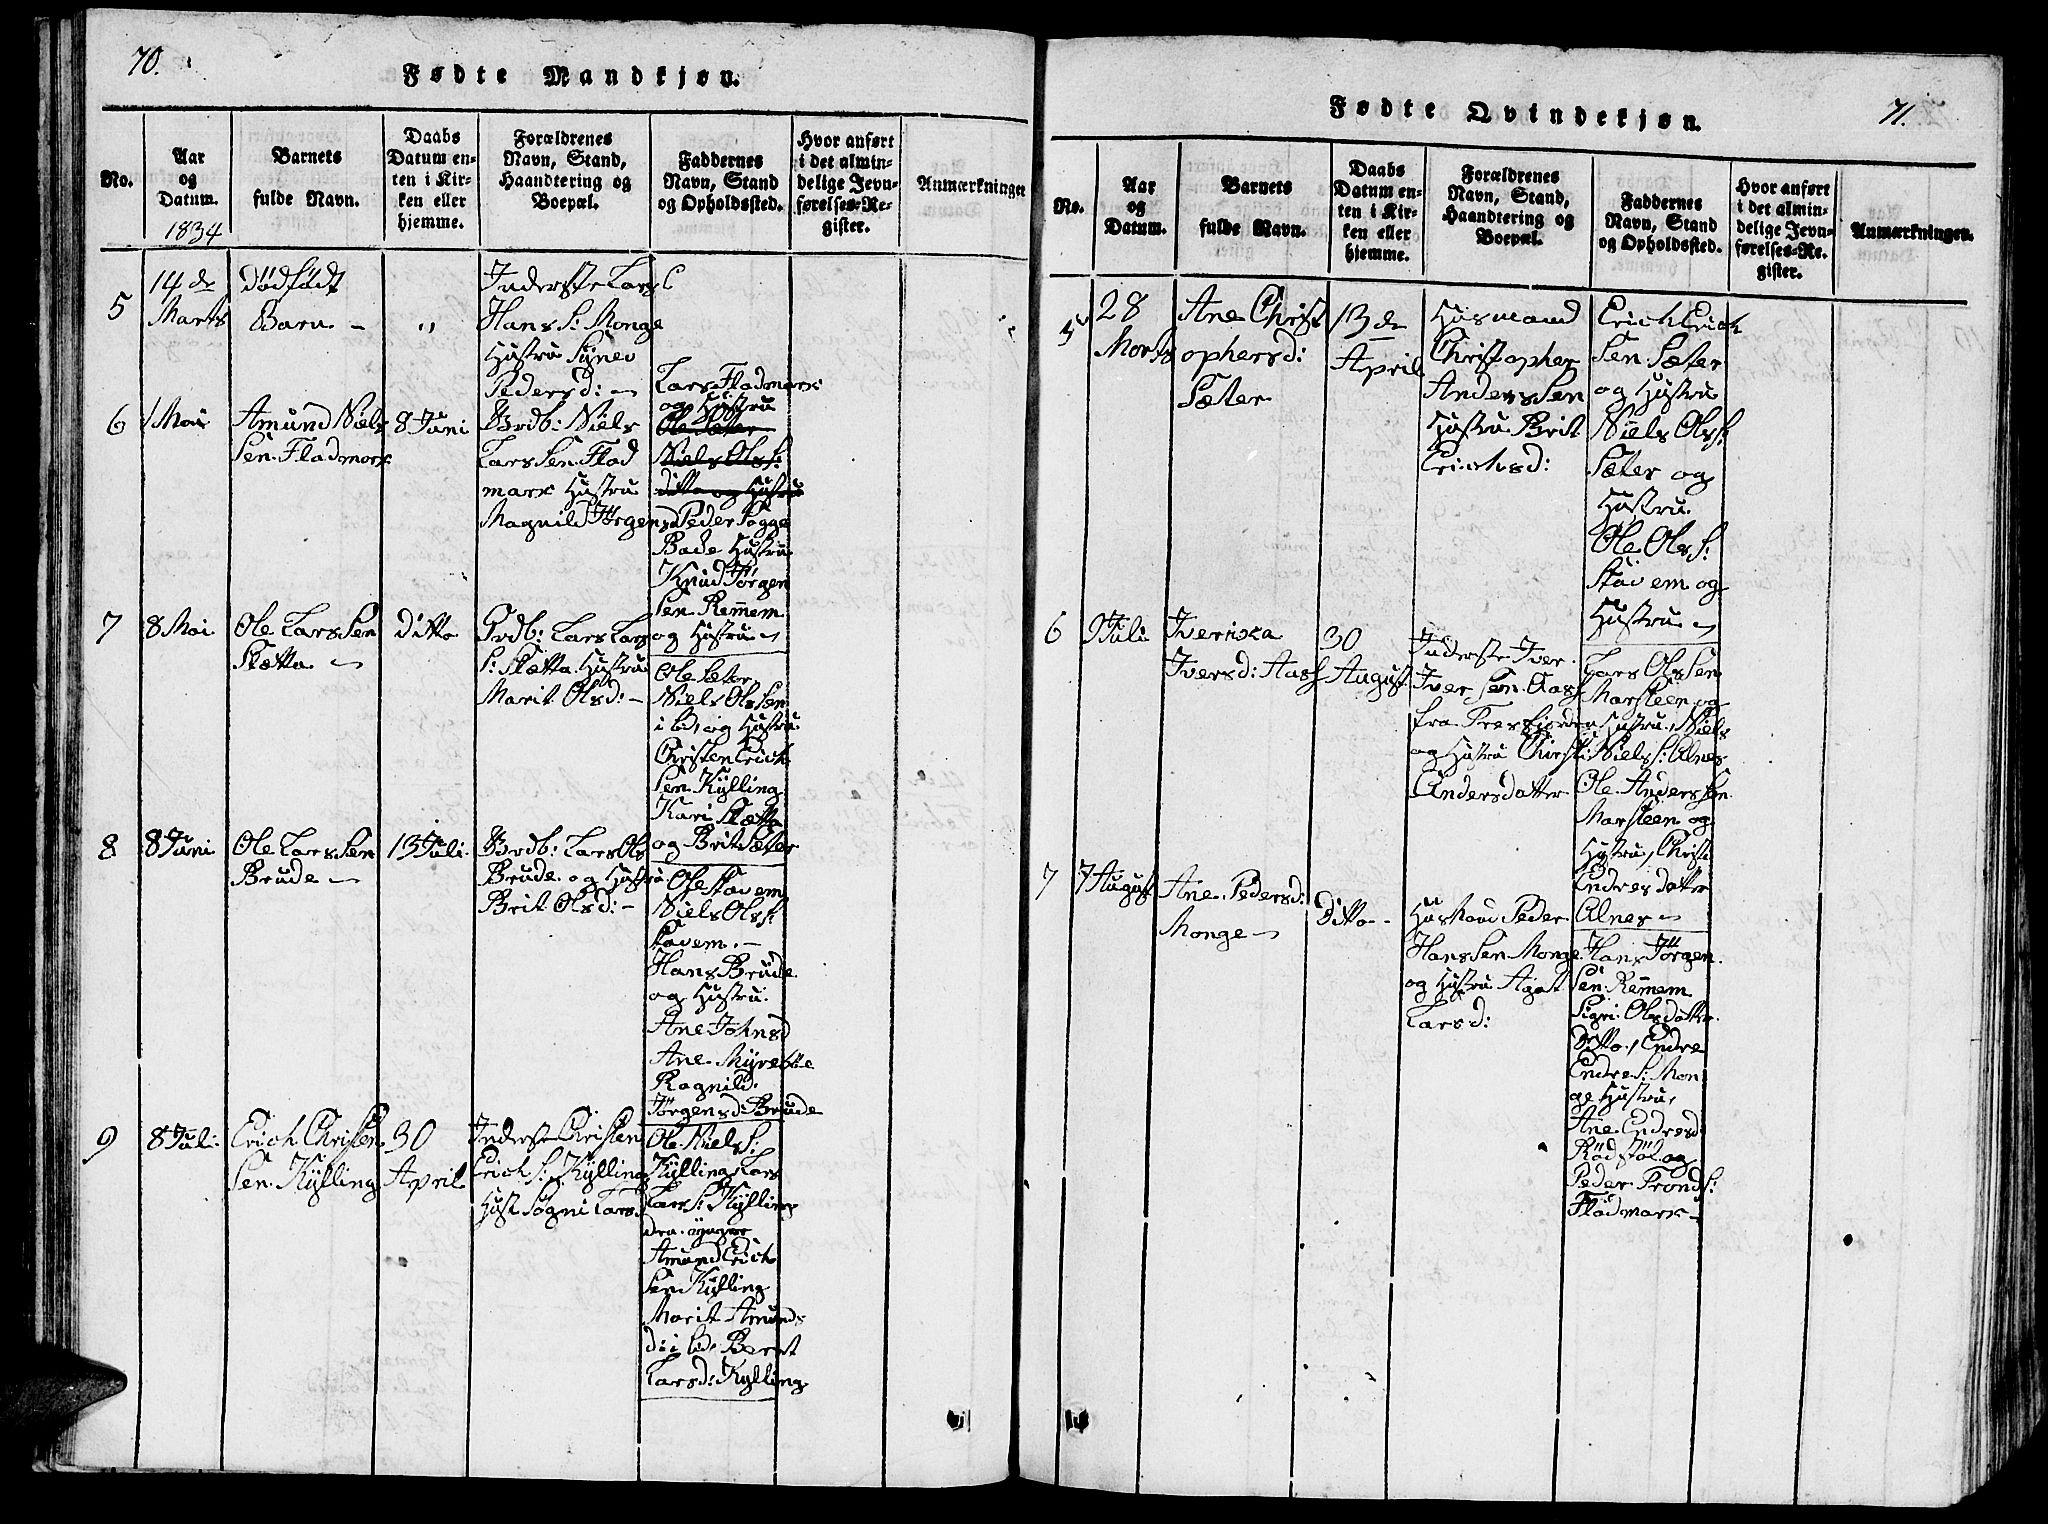 70.
Fødte Mandkjøn.
No.
Aar
og
Datum.
1834
Barnets
fulde Navn.
Daabs
Datum en-
ten i Kir-
ken eller
hjemme.
Forældrenes
Navn, Stand,
Haandtering og
Boepæl.
Faddernes
Navn, Stand
og Opholdssted.
Hvor anført
i det almin-
delige Jevn-
førelses-Re-
gister.
Anmærkninger
5
14 de
Marts
Dødfødt
Barn –
"
Inderste Lars
Hans S: Monge
Hustru Synev
Pedersd: –
6
1 Mai
Amund Niels
Sen Fladmark
8 Juni
Brdb: Niels
Lars Sen Flad
mark Hustru
Magnild Jørgensd
Lars Fladmark
og Hustru
Ole Sæter
Niels Ols S:
ditto og Hustru
Peder Sogge
Bade Hustru
Knud Jørgen
Sen Remmem
og Hustru –
7
8 Mai
Ole Lars Sen
Slætta –
ditto
Grdb: Lars Lars
S: Slætta Hustru
Marit Olsd: –
Ole Sæter
Niels Ols Sen
ibid, og Hustru
Christen Erich
Sen Kylling
Kari Slætta
og Brit Sæter
8
8 Juni
Ole Lars Sen
Brude –
13 Juli
Brdb: Lars Ols
Brude og Hustru
Brit Olsd: –
Ole Stavem
Niels Ols S:
Stavem. –
Hans Brude
og Hustru.
Ane Johnsd
Ane Myrebøe
Ragnild
Jørgensd: Brude
9
8 Juli
Erich Christen
Sen Kylling
30
April
Inderste Christen
Erich S: Kylling
Hust Sogni Larsd
Ole Niels S:
Kylling, Lars
Lars S: Kylling
den yngre
Amund Erich
Sen Kylling
Marit Amunds
d: ibid, Beret
Larsd: Kylling
71.
Fødte Qvindekjøn.
No.
Aar
og
Datum.
Barnets
fulde Navn.
Daabs
Datum en-
ten i Kir-
ken eller
hjemme.
Forældrenes
Navn, Stand,
Haandtering og
Boepæl.
Faddernes
Navn, Stand
og Opholdsted.
Hvor anført
i det almin-
delige Jevn-
førelses-Re-
gister.
Anmærkninger.
5
28
Marts
Ane Christ
ophersd:
Sæter
13 de
April
Husmand
Christopher
Anders Sen
Hustru Brit
Erichsd:
Erich Erich
Sen Sæter
og Hustru
Niels Ols S:
Sæter og
Hustru.
Ole Ols S:
Stavem og
Hustru –
6
9 Juli
Iveriska
Iversd: Aass
30
August
Inderste Iver
Iver Sen Aass
fra Tresfjorden
og Hustru Chirsti
Andersdatter
Lars Ols Sen
Marsteen og
Hustru, Niels
Niels S: Alnes
Ole Anders Sen
Marsteen og
Hustru, Christi
Endresdatter
Alnes –
7
7 August
Ane Pedersd:
Monge –
Ditto –
Husmand Peder
Hans Sen Monge
og Hustru Agat
Larsd:
Hans Jørgen
Sen Remmem
Sigri Olsdatter
ditto, Endre
Endre S: Mon
ge Hustru,
Ane Endresd
Rødstøl og
Peder Trond S:
Fladmark –